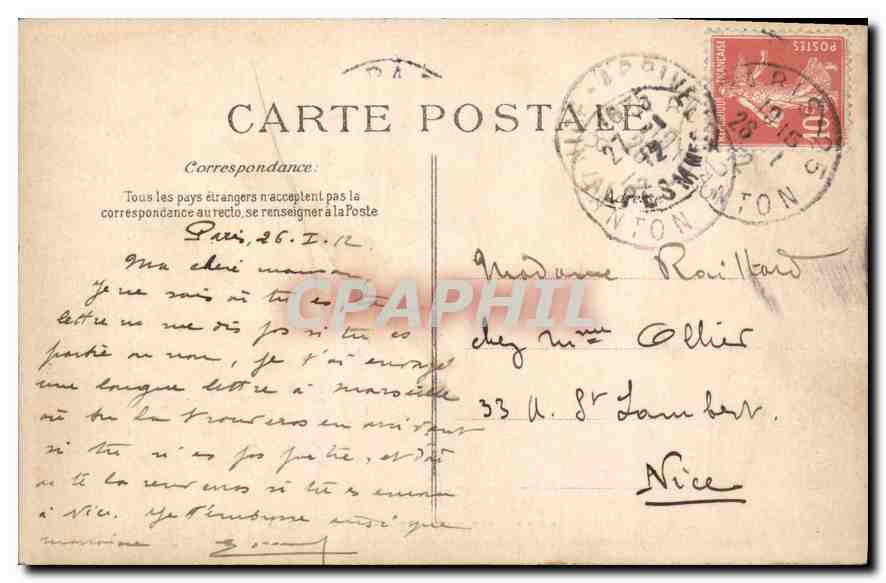 CARTE POSTALE
Correspondance:
Tous les pays étrangers n'acceptent pas la
correspondance au recto, se renseigner à la Poste
Paris, 26. I. 12
Ma chère maman
Je ne sais où tu es ta
lettre ne me dis pas si tu es
partie ou non, je t'ai envoyé
une longue lettre à Marseille
où tu la trouveras en arrivant
si tu n'es pas partie, et
on te la rendra si tu es encore
à Nice. Je t'embrasse ainsi que
marraine.
Madame Raillard
chez Mme Ollier
33 A. St Lambert.
Nice
POSTES
REPUBLIQUE FRANÇAISE
10
CPAPHIL